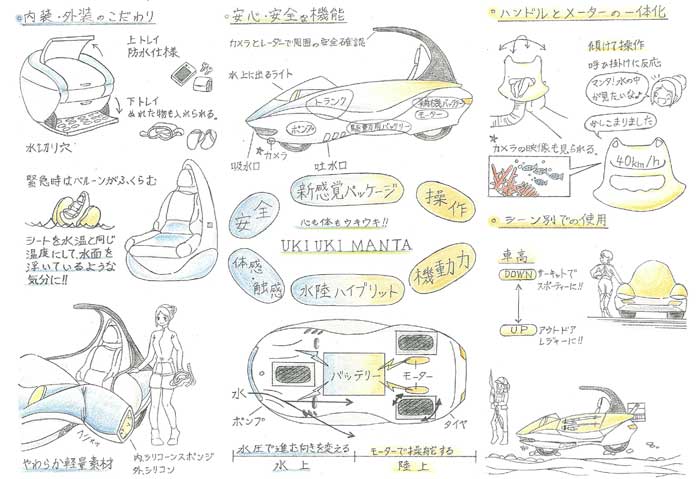 内装・外装のこだわり
上トレイ
防水仕様
下トレイ
ぬれた物も入れられる。
水切り穴
緊急時はバルーンがふくらむ
シートを水温と同じ
温度にして、水面を
浮いているような
気分に!!
やわらか軽量素材
内、シリコーンスポンジ
外、シリコン
安心・安全な機能
カメラとレーダーで周囲の安全を確認
水上に出るライト
トランク
補機バッテリー
モーター
ポンプ
駆動用バッテリー
カメラ
吸水口
吐水口
新感覚パッケージ
安全
操作
心も体もウキウキ!!
UKI UKI MANTA
体感・
触感
水陸ハイブリット
機動力
バッテリー
モーター
水
ポンプ
タイヤ
水圧で進む向きを変える
モーターで操舵する
水上
陸上
ハンドルとメーターの一体化
傾けて操作
呼び掛けに反応
マンタ!水の中
が見たいな♪
かしこまりました
カメラの映像も見られる。
40km/h
シーン別での使用
車高
DOWN
サーキットで
スポーティーに!!
UP
アウトドア
レジャーに!!